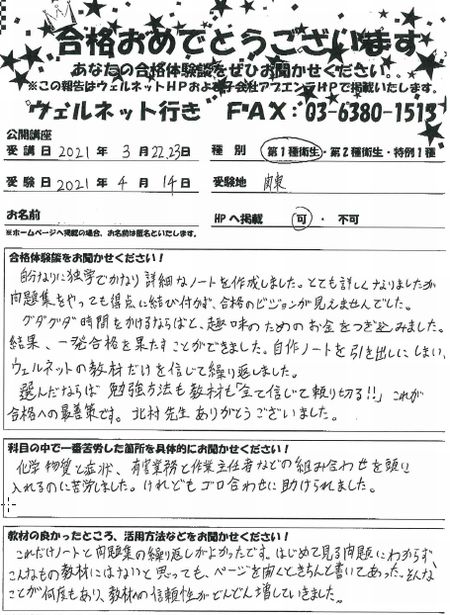 合格おめでとうございます
あなたの合格体験談をぜひお聞かせください。
※この報告はウェルネットHPおよび子会社アブエンテHPで掲載いたします。
ウェルネット行き FAX:03-6380-1513
公開講座
受講日 2021 年 3 月 22,23 日 種別 第1種衛生・第2種衛生・特例1種
受験日 2021 年 4 月 14 日 受験地 関東
お名前 HPへ掲載 可・不可
※ホームページへ掲載の場合、お名前は匿名といたします。
合格体験談をお聞かせください!
自分なりに独学でかなり詳細なノートを作成しました。とても詳しくなりましたが
問題集をやっても得点に結び付かず、合格のビジョンが見えませんでした。
グダグダ時間をかけるならばと、趣味のためのお金をつぎ込みました。
結果、一発合格を果たすことができました。自作ノートを引き出しにしまい、
ウェルネットの教材だけを信じて繰り返しました。
選んだならば勉強方法も教材も"全て信じて頼り切る!!"これが
合格への最善策です。北村先生ありがとうございました。
科目の中で一番苦労した箇所を具体的にお聞かせください!
化学物質と症状、有害業務と作業主任者などの組み合わせを頭に
入れるのに苦労しました。けれどもゴロ合わせに助けられました。
教材の良かったところ、活用方法などをお聞かせください!
これだけノートと問題集の繰り返しがよかったです。はじめて見る問題にわからず、
こんなもの教材にはないと思っても、ページを開くときちんと書いてあった。そんな
ことが何度もあり、教材への信頼性がどんどん増していきました。